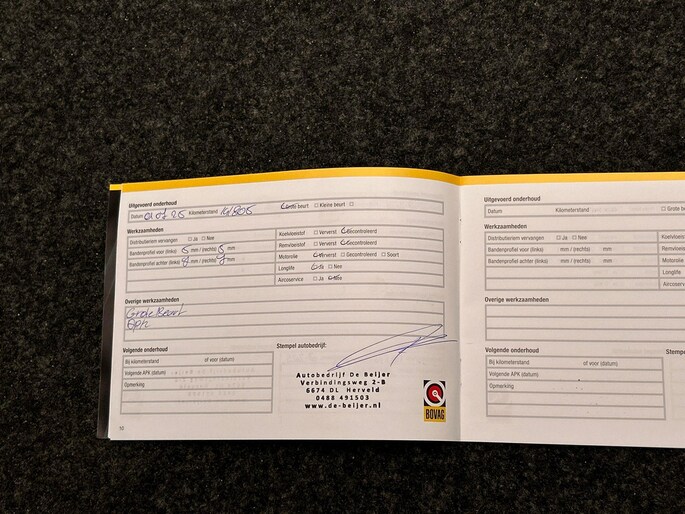 Uitgevoerd onderhoud
Datum Kilometerstand Grote beurt Kleine beurt
Werkzaamheden
Distributieriem vervangen Ja Nee
Bandenprofiel voor (links) 5 mm / (rechts) 5 mm
Bandenprofiel achter (links) mm / (rechts) mm
Koelvloeistof Ververst Gecontroleerd
Remvloeistof Ververst Gecontroleerd
Motorolie Ververst Gecontroleerd Soort
Longlife Ja Nee
Aircoservice Ja Nee
Overige werkzaamheden
Grote Beurt
Volgende onderhoud
Bij kilometerstand of voor (datum)
Volgende APK (datum)
Opmerking
Stempel autobedrijf:
Autobedrijf De Beijer
Verbindingsweg 2-B
6674 DL Herveld
0488 491503
www.de-beijer.nl
BOVAG
Uitgevoerd onderhoud
Datum Kilometerstand Grote be
Werkzaamheden
Distributieriem vervangen Ja Nee
Bandenprofiel voor (links) mm / (rechts) mm
Bandenprofiel achter (links) mm / (rechts) mm
Koelvloeis
Remvloeis
Motorolie
Longlife
Aircoservi
Overige werkzaamheden
Volgende onderhoud
Bij kilometerstand of voor (datum)
Volgende APK (datum)
Opmerking
Stempe